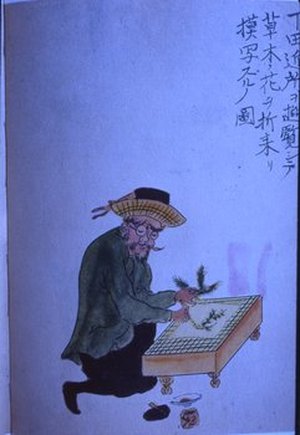 下田近所ヲ遊覧シテ
草木ノ花ヲ折来リ
模写スルノ圖